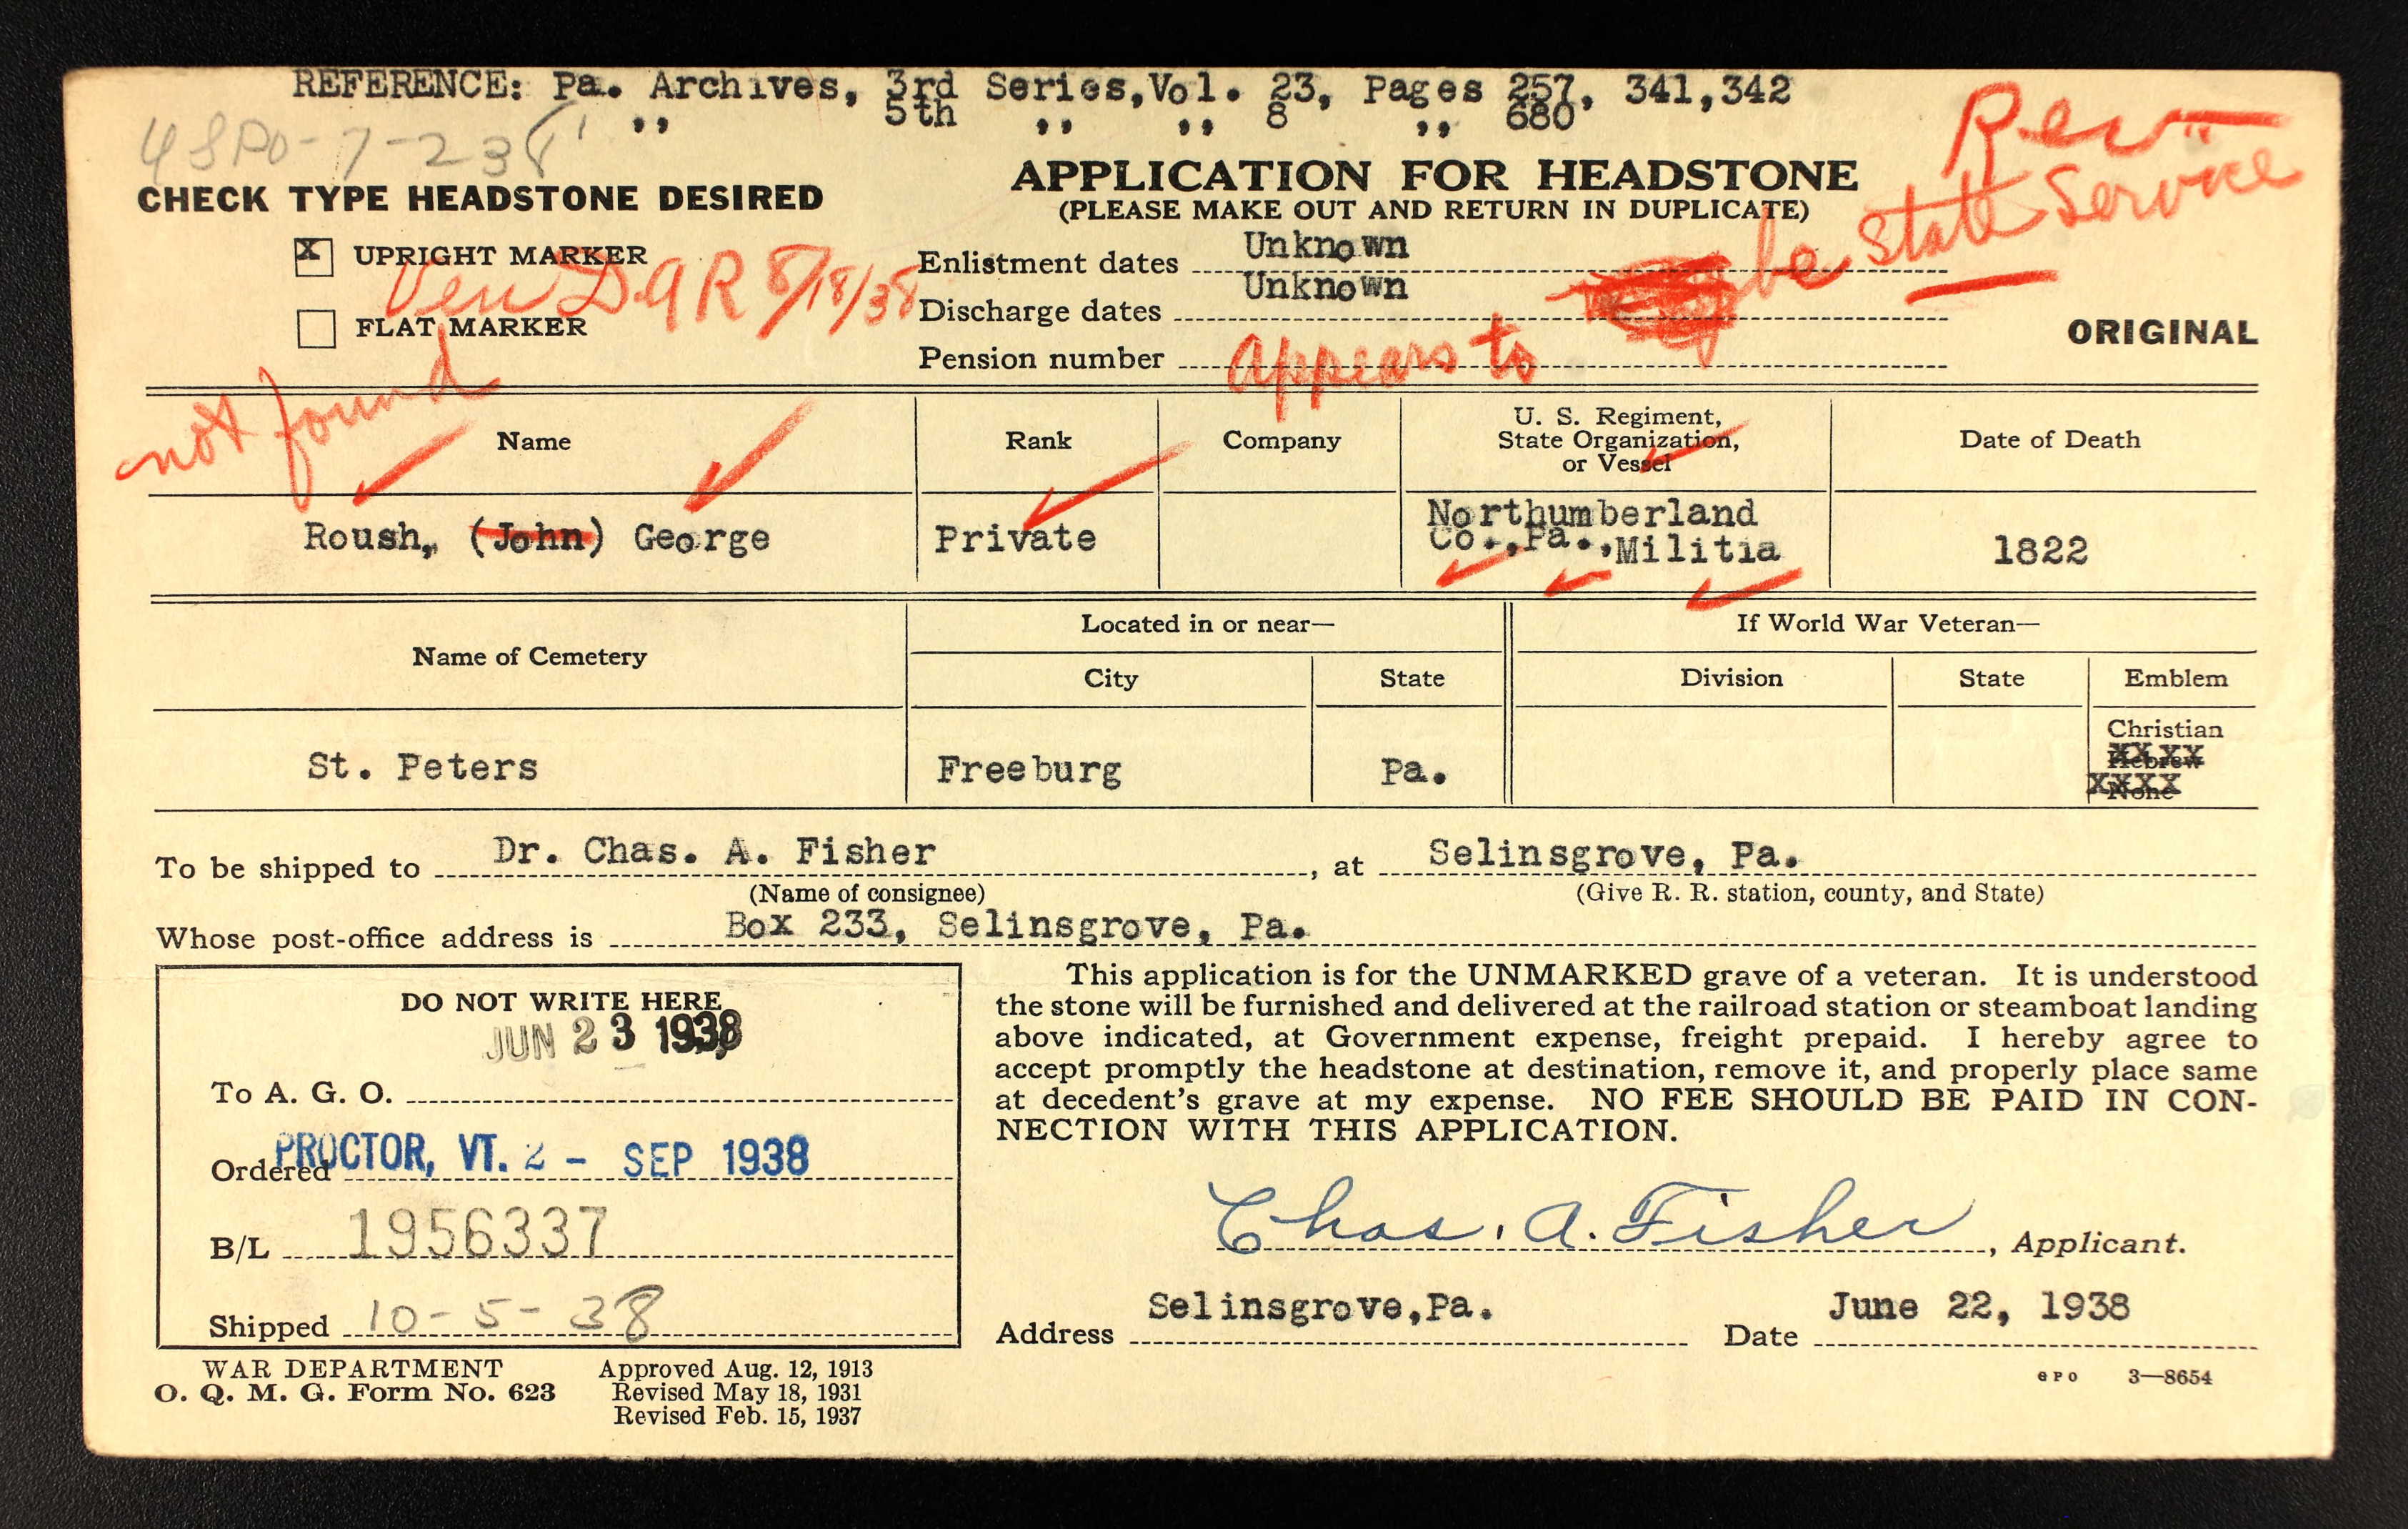 REFERENCE: Pa. Archives, 3rd Series, Vol. 23, Pages 257, 341,342
,, 5th ,, ,, 8 ,, 680
Rev-
State Service
CHECK TYPE HEADSTONE DESIRED
X UPRIGHT MARKER
Ver D.A.R 8/18/38
FLAT MARKER
not found
APPLICATION FOR HEADSTONE
(PLEASE MAKE OUT AND RETURN IN DUPLICATE)
Enlistment dates Unknown
Discharge dates Unknown
Pension number
Appears to be
ORIGINAL
Name Rank Company U. S. Regiment, State Organization, or Vessel Date of Death
Roush, (John) George Private Northumberland Co., Pa., Militia 1822
Name of Cemetery Located in or near— If World War Veteran—
City State Division State Emblem
St. Peters Freeburg Pa. Christian
XXXX Hebrew
XXXX None
To be shipped to Dr. Chas. A. Fisher, at Selinsgrove, Pa.
(Name of consignee) (Give R. R. station, county, and State)
Whose post-office address is Box 233, Selinsgrove, Pa.
DO NOT WRITE HERE
JUN 23 1938
To A. G. O.
Ordered PROCTOR, VT. 2 - SEP 1938
B/L 1956337
Shipped 10-5-38
This application is for the UNMARKED grave of a veteran. It is understood
the stone will be furnished and delivered at the railroad station or steamboat landing
above indicated, at Government expense, freight prepaid. I hereby agree to
accept promptly the headstone at destination, remove it, and properly place same
at decedent's grave at my expense. NO FEE SHOULD BE PAID IN CON-
NECTION WITH THIS APPLICATION.
Chas. A. Fisher, Applicant.
Address Selinsgrove,Pa. Date June 22, 1938
WAR DEPARTMENT
O. Q. M. G. Form No. 623
Approved Aug. 12, 1913
Revised May 18, 1931
Revised Feb. 15, 1937
GPO 3—8654